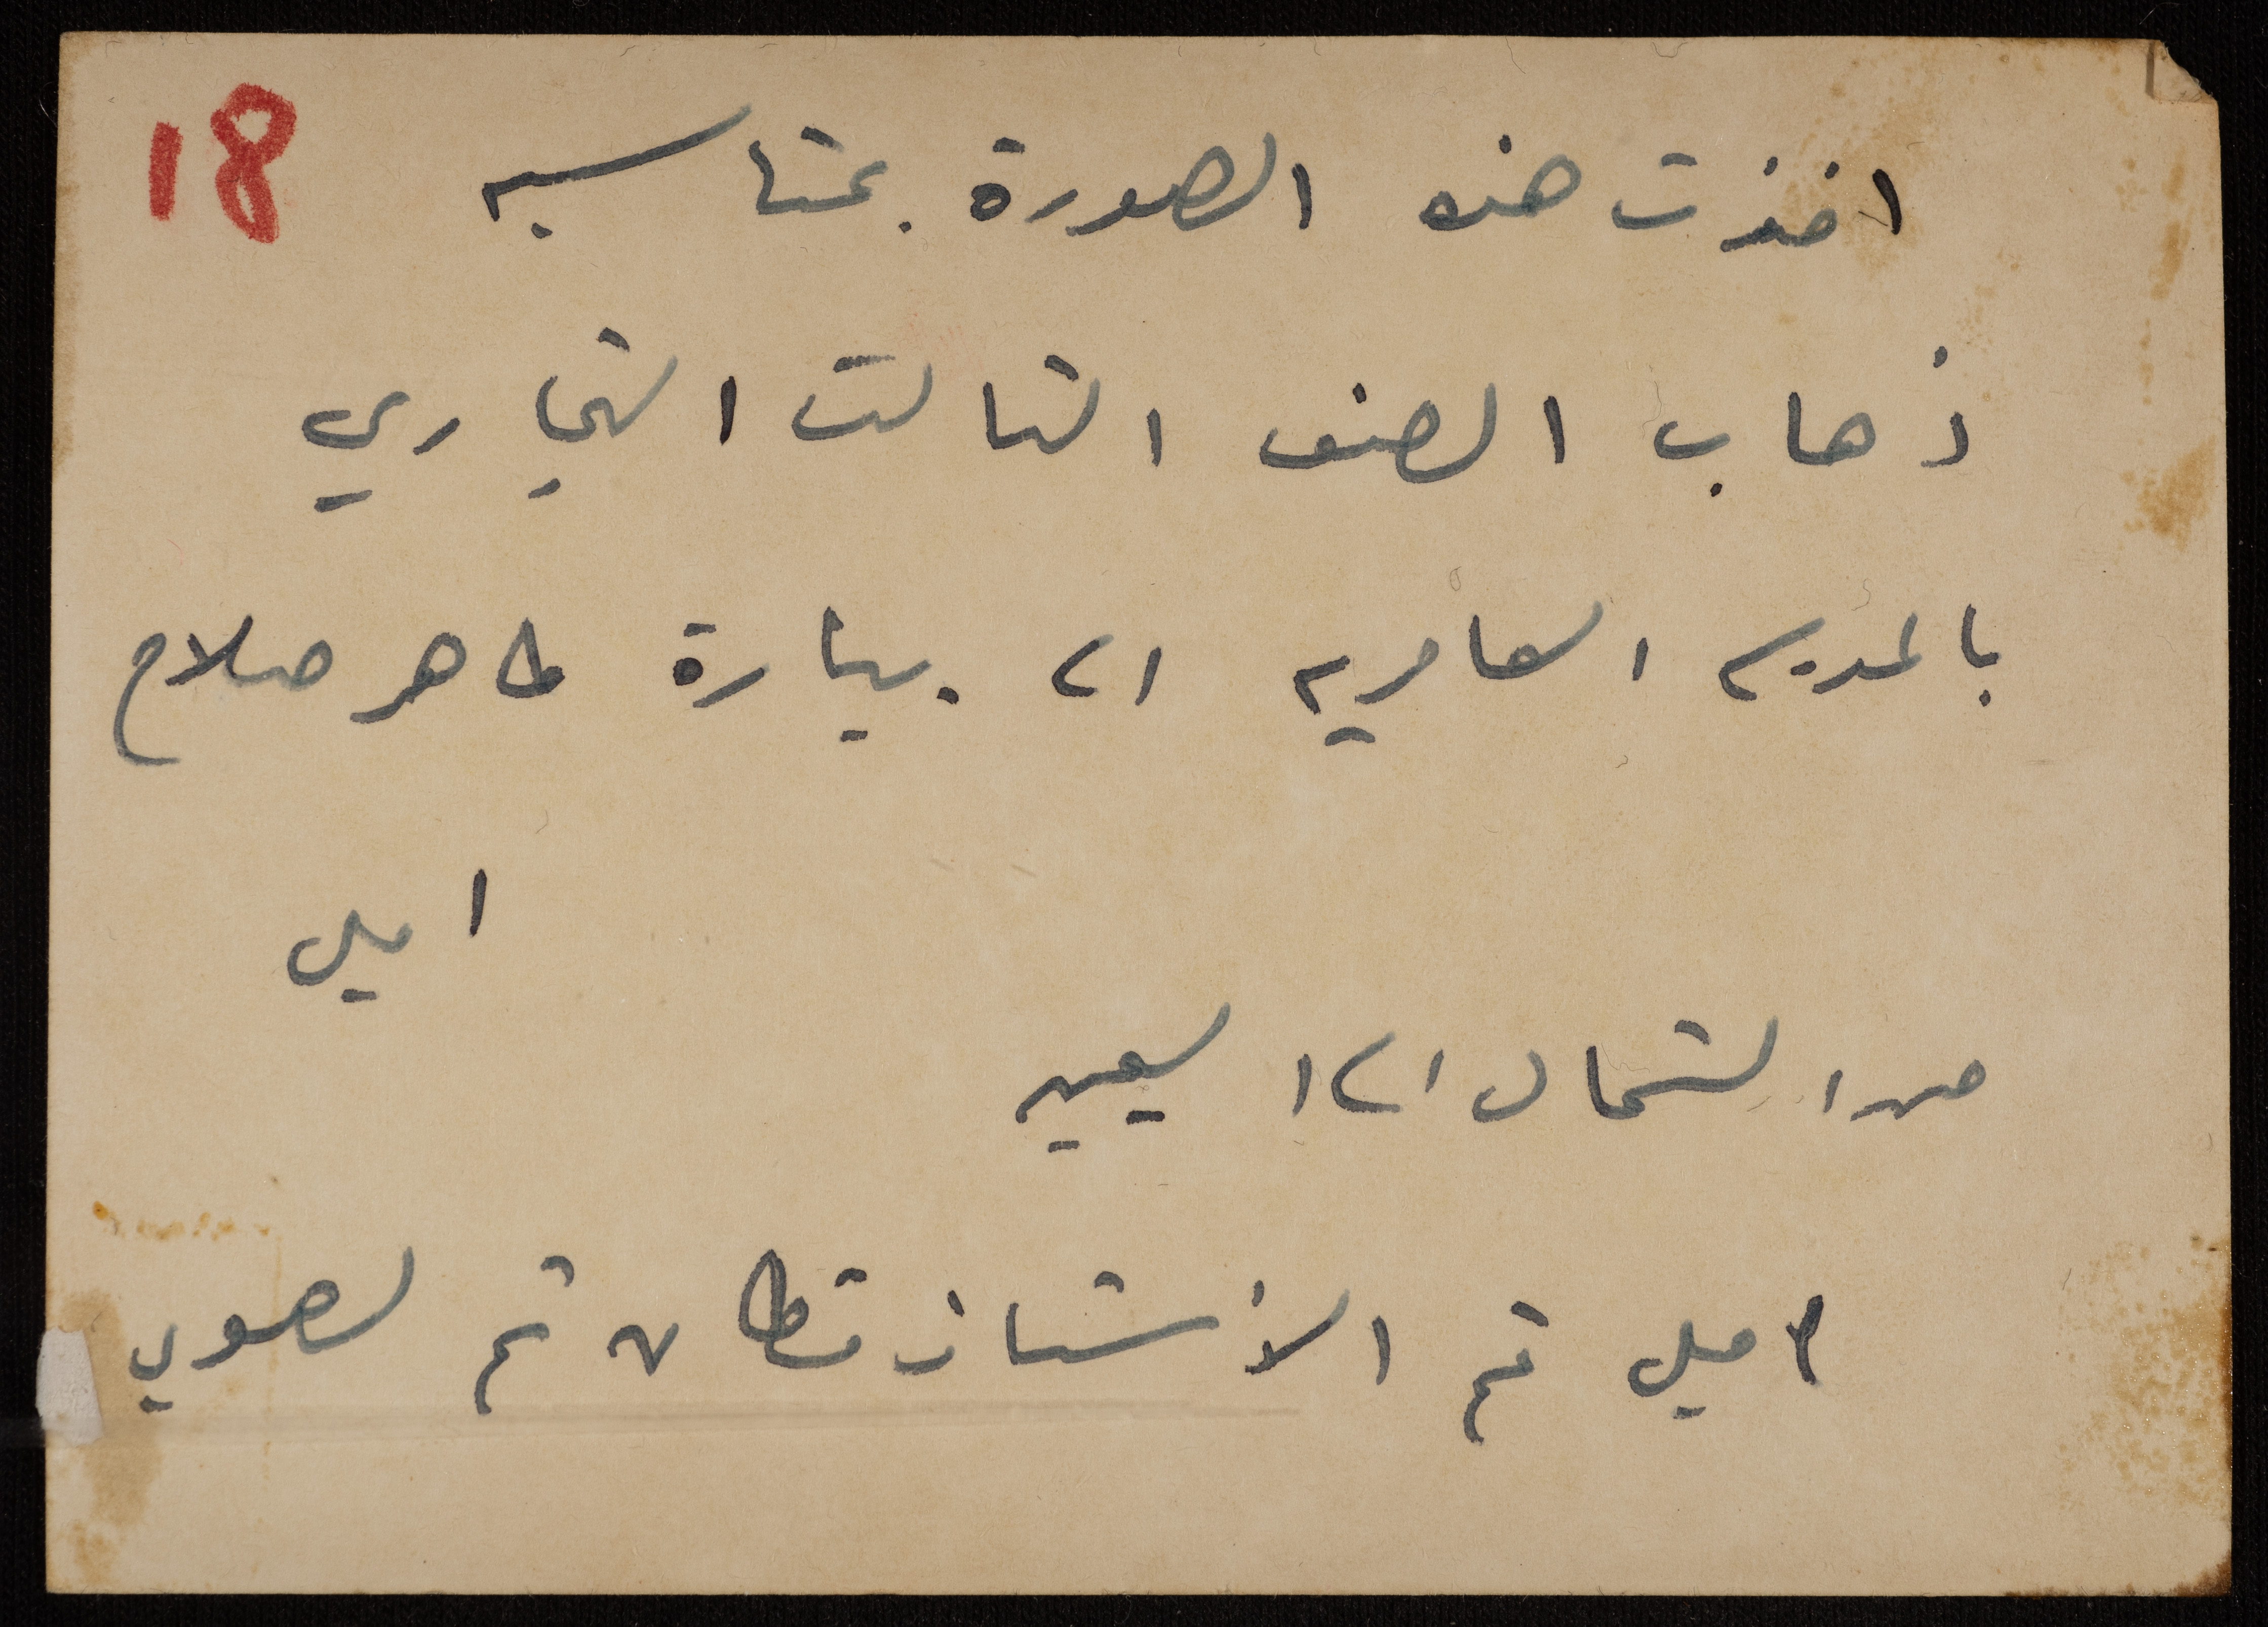 18
اخذت هذه الصورة بمناسبه
ذهاب الصف الثالث التجاري
بالمدرسه العامريه الى بيارة طاهر صلاح
اميل
من الشمال الى اليمين
اميل ثم الأستاذ قطان ثم